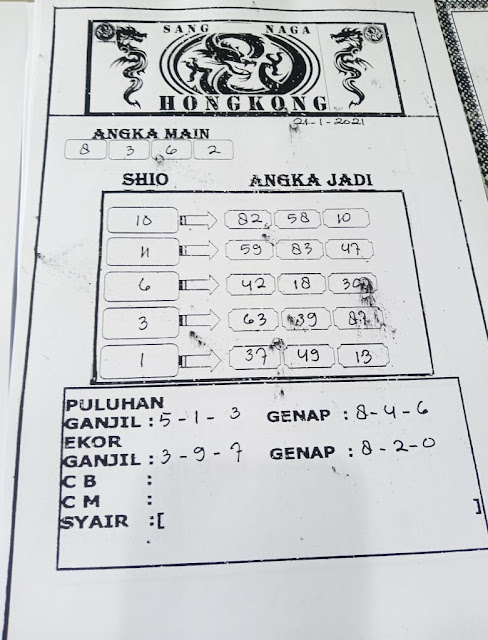 SANG NAGA
HONGKONG
21-1-2021
ANGKA MAIN
8 3 6 2
SHIO ANGKA JADI
10 82 58 10
11 59 83 47
6 42 18 30
3 63 39 87
1 37 49 13
PULUHAN
GANJIL : 5 - 1 - 3 GENAP : 8 - 4 - 6
EKOR
GANJIL : 3 - 9 - 7 GENAP : 8 - 2 - 0
C B :
C M :
SYAIR :[ ]